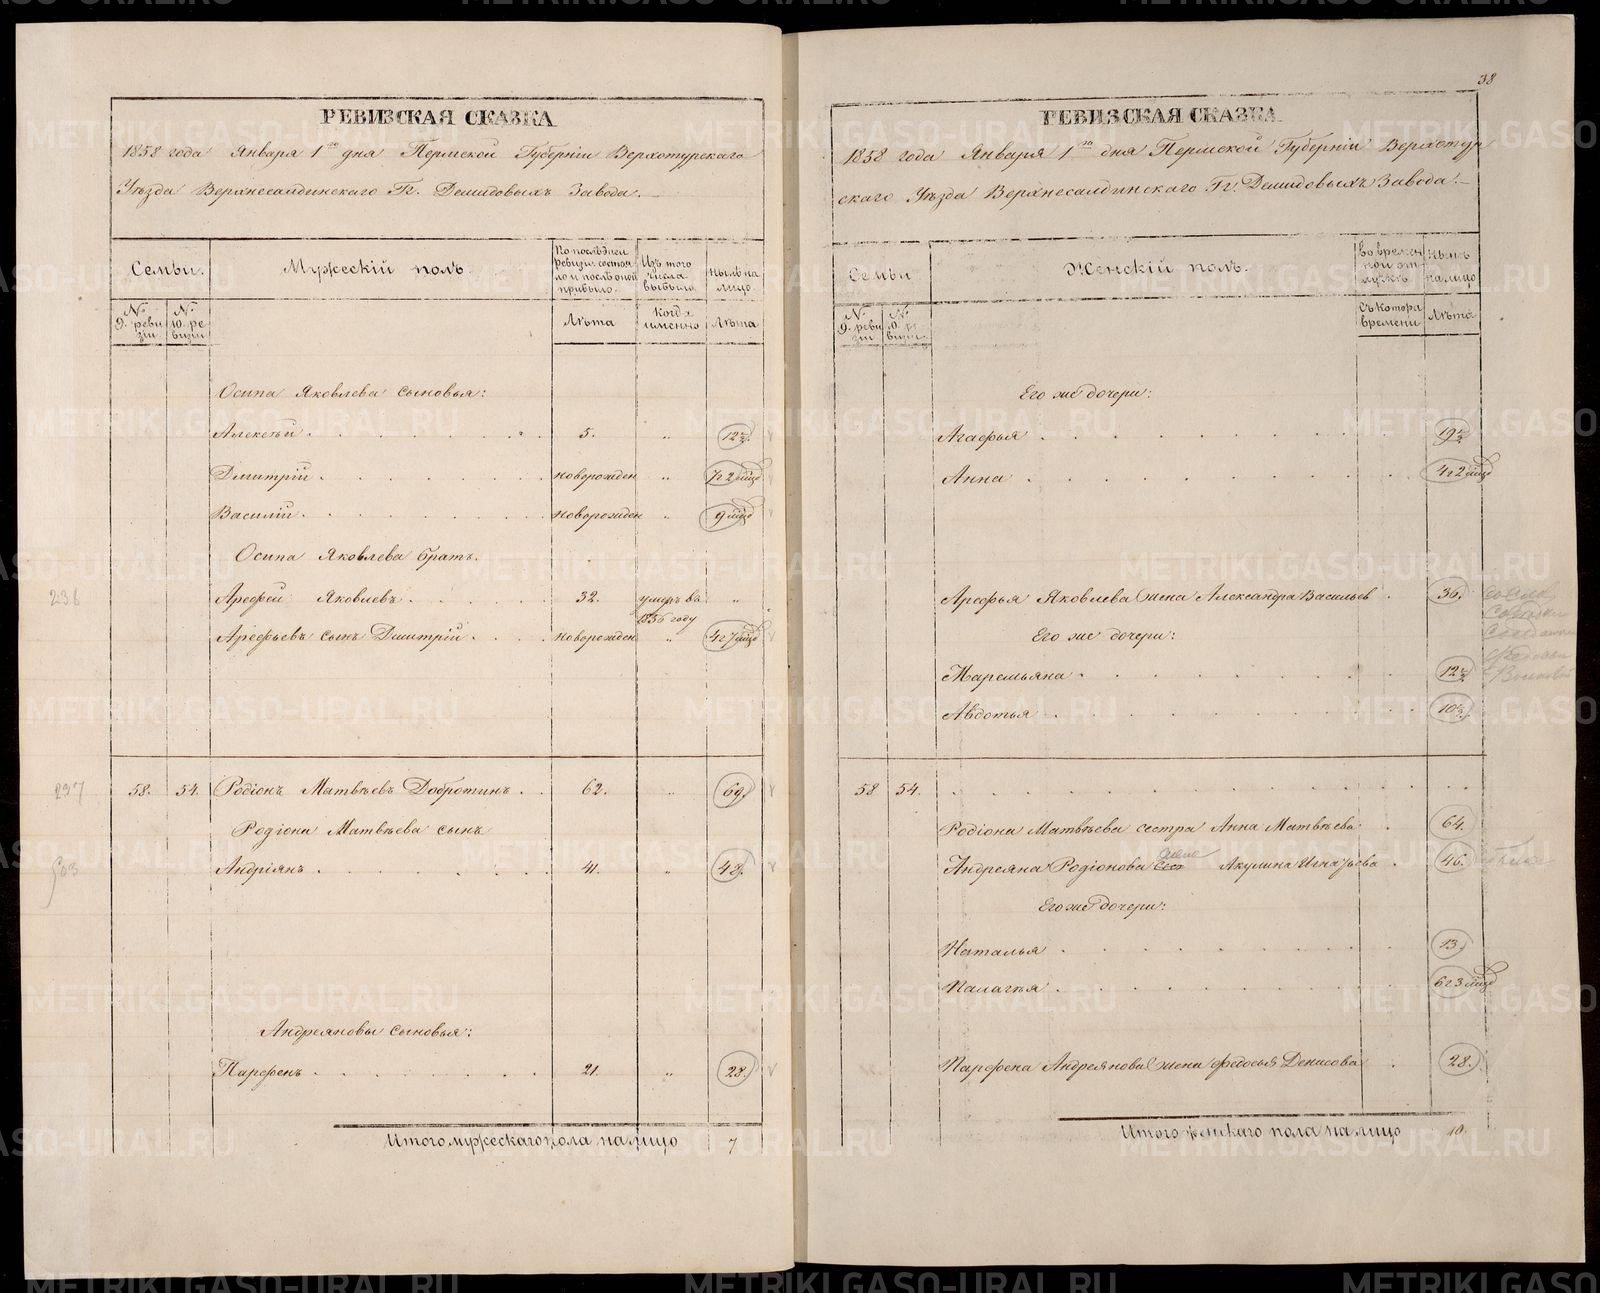 РЕВИЗСКАЯ СКАЗКА
1858 года Января 1го дня Пермской Губерніи Верхотурскаго
Уѣзда Верхнесалдинскаго Гг. Демидовыхъ Завода.
Семьи.
Мужескій полъ.
По послѣдней ревизіи состояло и послѣ оной прибыло.
Изъ того числа выбыло
Нынѣ на лицо.
№ 9. ревизіи
№ 10. ревизіи
Лѣта
Когда именно
Лѣта
Осипа Яковлева сыновья:
Алексѣй 5. „ 12½.
Дмитрій новорожден „ 7г 2 мѣсц
Василій новорожден „ 9 мѣсц
Осипа Яковлева братъ.
236
Арефей Яковлевъ 32. умеръ въ 1856 году „
Арефьевъ сынъ Дмитрій новорожден „ 4г 7 мѣсц
237
58. 54. Родіонъ Матвѣевъ Добротинъ 62. „ 69.
Родіона Матвѣева сынъ
503
Андріянъ 41. „ 48.
Андреяновы сыновья:
Парфенъ 21. „ 28.
Итого мужескаго пола на лицо 7
38
РЕВИЗСКАЯ СКАЗКА
1858 года Января 1го дня Пермской Губерніи Верхотур
скаго Уѣзда Верхнесалдинскаго Гг. Демидовыхъ Завода.
Семьи
Женскій полъ.
Во временной отлучкѣ
Нынѣ на лицо
№ 9. ревизіи
№ 10. ревизіи.
Съ котораго времени
Лѣта
Его же дочери:
Агафья 19½
Анна 4г 2 мѣсц
Арефья Яковлева жена Александра Васильев 36.
Его же дочери:
Маремьяна 12½
Авдотья 10½.
58 54.
Родіона Матвѣева сестра Анна Матвѣева 64.
Андреяна Родіонова жена Акулина Игнатьева 46.
Его же дочери:
Наталья 13.
Палагья 6г 3 мѣсц
Парфена Андреянова жена Федосья Денисова 28.
Итого женскаго пола на лицо 10.
METRIKI.GASO-URAL.RU